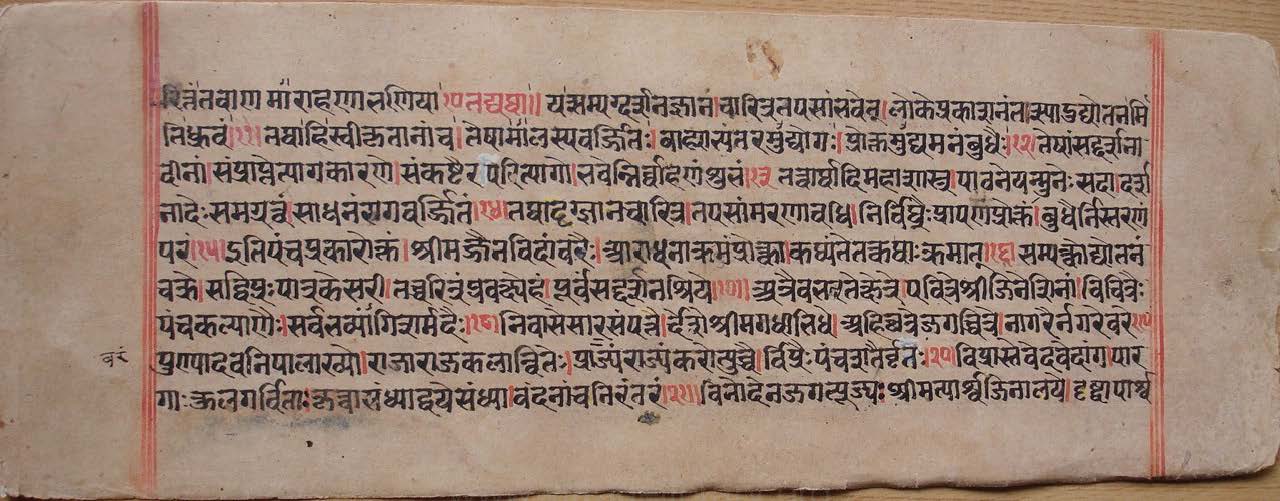 रित्तंतवाण माराहणा भणिया १० तद्यथा॥ यत्सम्यग्दर्शनज्ञान चारित्रतपसां भवेत् लोके प्रकाशनं तत्स्यादुद्योतनमि
ति ध्रुवं ११ तथा हि स्वीकृतानां च तेषामालस्यवर्ज्जितः बाह्याभ्यंतरमुद्योगः प्रोक्तमुद्यमनं बुधैः १२ तेषां सद्दर्शना
दीनां संप्राप्ते त्यागकारणे संकष्टैरपरित्यागो भवेन्निर्वाहणं शुभं १३ तत्वार्थादिमहाशास्त्र पावने यन्मुनेः सदा दर्श
नादेः समग्रत्वं साधनं रागवर्ज्जितं १४ तथा दृग्ज्ञानचारित्र तपसां मरणावधि निर्विघ्नैः प्रापणं प्रोक्तं बुधैर्निस्तरणं
परं १५ इति पंचप्रकारोक्तं श्रीमज्जैनविदांवरैः आराधनाक्रमं प्रोक्त्वा कथ्यंते तत्कथाः क्रमात् १६ सम्यक्त्वोद्योतनं
चक्रे सद्विप्रः पात्रकेसरी तच्चरित्रं प्रवक्ष्येहं पूर्वं सद्दर्शनश्रिये १७ अत्रैव भरतक्षेत्रे पवित्रे श्रीजिनेशिनां विचित्रैः
पंचकल्याणैः सर्वभव्यांगिशर्मदैः १८ निवासे सारसंपत्तेः देशे श्रीमगधाभिधे अहिछत्रे जगच्चित्रे नागरैर्नगरे वरे १९
पुण्यादवनिपालाख्यो राजा राजकलान्वितः प्राज्यं राज्यं करोत्युच्चै र्विप्रैः पंचशतैर्वृतः २० विप्रास्ते वेदवेदांग पार
वरं
गाः कुलगर्विताः कृत्वा संध्याद्वये संध्या वंदनां च निरंतरं २१ विनोदेन जगत्पूज्य श्रीमत्पार्श्वजिनालये दृष्ट्वा पार्श्व